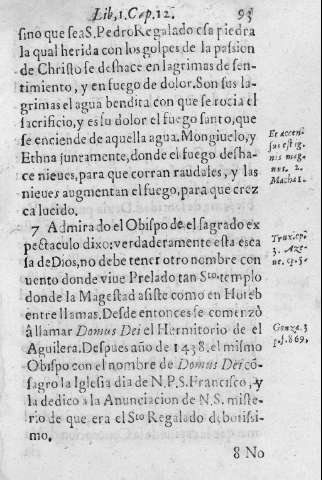 Lib,1.Cap.12. 93
sino que sea S. Pedro Regalado esa piedra
la qual herida con los golpes de la passion
de Christo se deshace en lagrimas de sen-
timiento, y en fuego de dolor. Son sus la-
grimas el agua bendita con que se rocia el
sacrificio, y es su dolor el fuego santo, que
se enciende de aquella agua. Mongiuelo, y
Ethna juntamente, donde el fuego desha-
ce nieues, para que corran raudales, y las
nieues augmentan el fuego, para que crez
ca lucido.
Et accen
sus est ig-
nis mag-
nus. 2.
Machab.
7 Admirado el Obispo de el sagrado ex
pectaculo dixo: verdaderamente esta es ca
sa de Dios, no debe tener otro nombre con
uento donde viue Prelado tan Sto. templo
donde la Magestad asiste como en Horeb
entre llamas. Desde entonces se comenzò
à llamar Domus Dei el Hermitorio de el
Aguilera. Despues año de 1438. el mismo
Obispo con el nombre de Domus Dei cõ-
sagro la Iglesia dia de N.P.S. Francisco, y
la dedico a la Anunciacion de N.S. miste-
rio de que era el Sto Regalado debotissi-
mo.
3.
Gonza. 3
p.f.869.
8 No